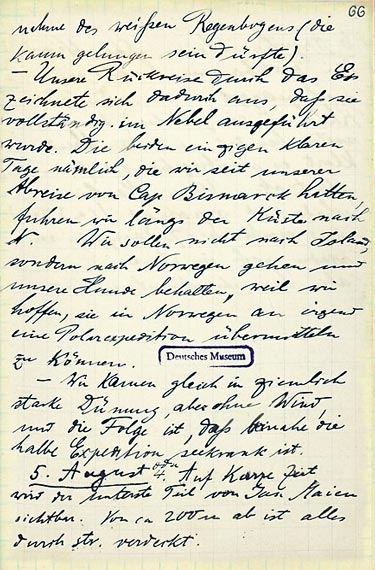 66
nahme des weißen Regenbogens (die
kaum gelungen sein dürfte).
– Unsere Rückreise durch das Eis
zeichnete sich dadurch aus, daß sie
vollständig im Nebel ausgeführt
wurde. Die beiden einzigen klaren
Tage nämlich, die wir seit unserer
Abreise von Cap Bismarck hatten,
fuhren wir längs der Küste nach
N. Wir sollen nicht nach Island,
sondern nach Norwegen gehen und
unsere Hunde behalten, weil wir
hoffen, sie in Norwegen an irgend
eine Polarexpedition übermitteln
zu können.
Deutsches Museum
– Wir kamen gleich in ziemlich
starke Dünung, aber ohne Wind,
und die Folge ist, daß beinahe die
halbe Expedition seekrank ist.
5. August oder 4. Auf kurze Zeit
wird der unterste Teil von Jan Maien
sichtbar. Von ca 200 m ab ist alles
durch str. verdeckt.